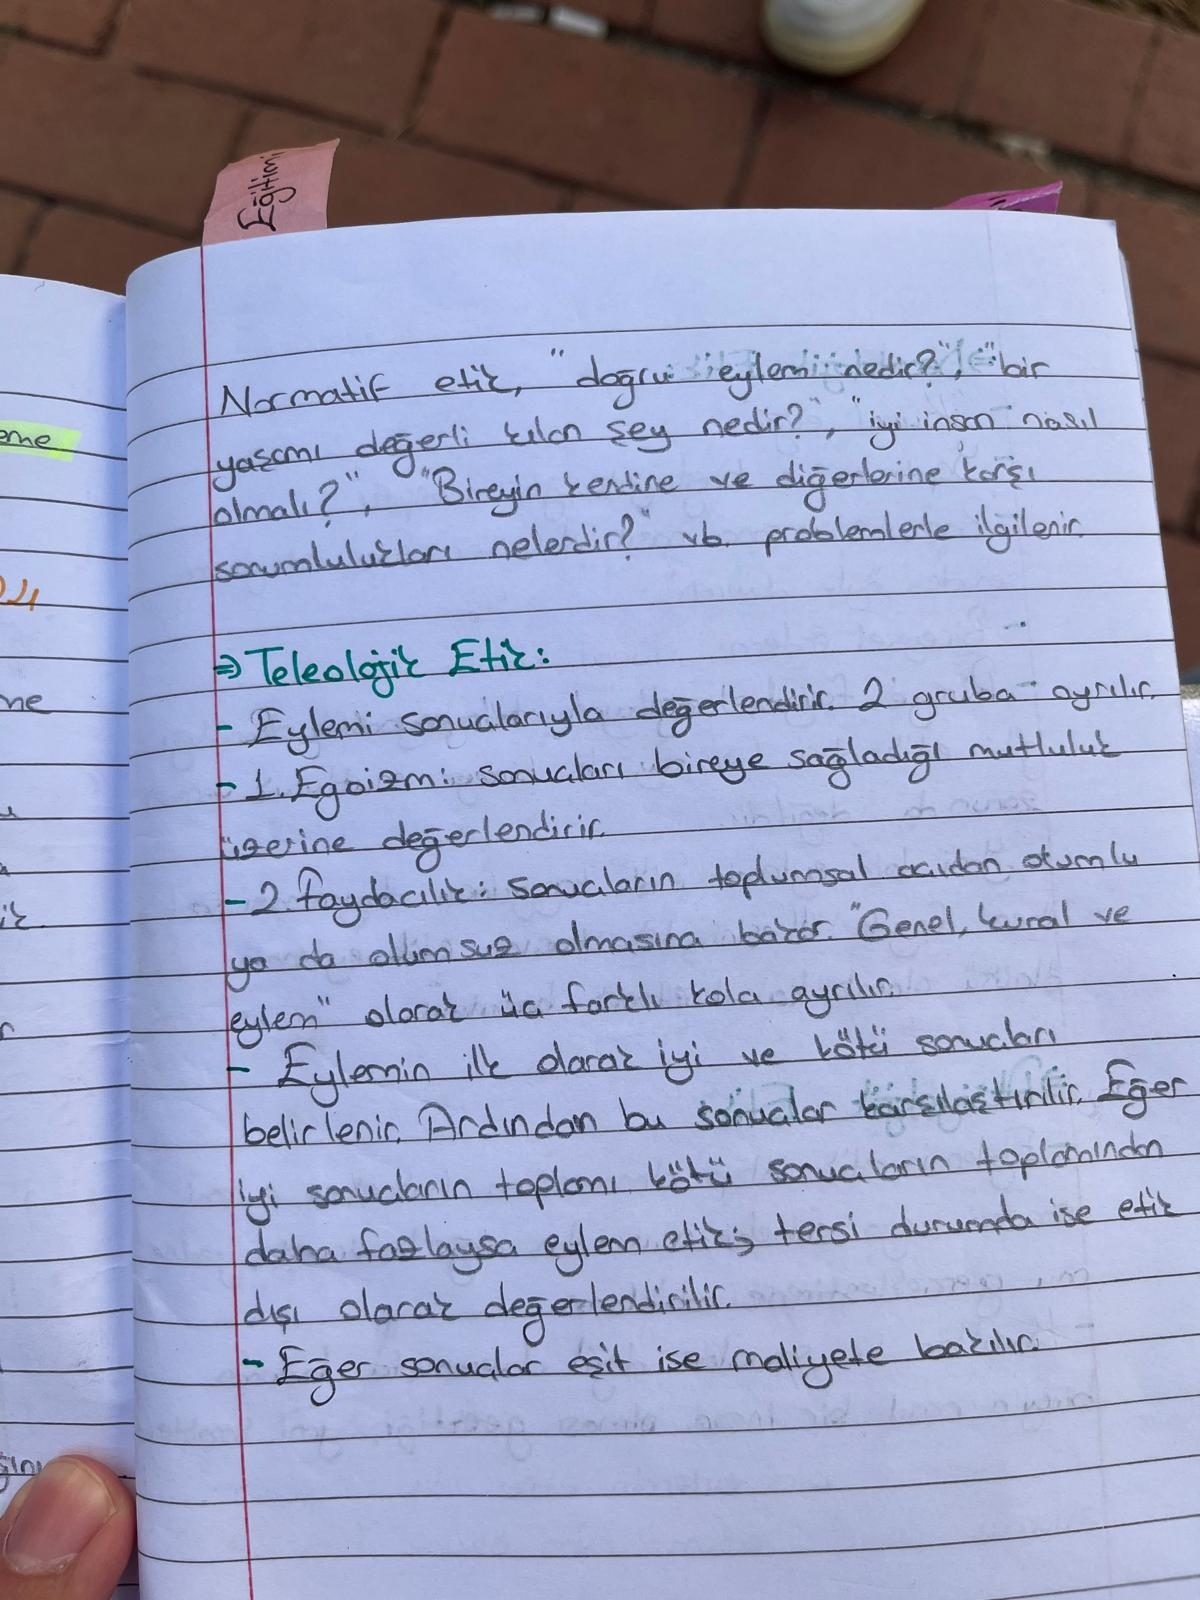 Eğitim
Normatif etik, "doğru eylem nedir?", "bir
yaşamı değerli kılan şey nedir?", "iyi insan nasıl
olmalı?", "Bireyin kendine ve diğerlerine karşı
sorumlulukları nelerdir?" vb. problemlerle ilgilenir.
⇒ Teleolojik Etik:
- Eylemi sonuçlarıyla değerlendirir. 2 gruba ayrılır.
- 1. Egoizm: sonuçları bireye sağladığı mutluluk
üzerine değerlendirir.
- 2. faydacılık: sonuçların toplumsal açıdan olumlu
ya da olumsuz olmasına bakar. "Genel, kural ve
eylem" olarak üç farklı kola ayrılır.
- Eylemin ilk olarak iyi ve kötü sonuçları
belirlenir. Ardından bu sonuçlar karşılaştırılır. Eğer
iyi sonuçların toplamı kötü sonuçların toplamından
daha fazlaysa eylem etik; tersi durumda ise etik
dışı olarak değerlendirilir.
- Eğer sonuçlar eşit ise maliyete bakılır.